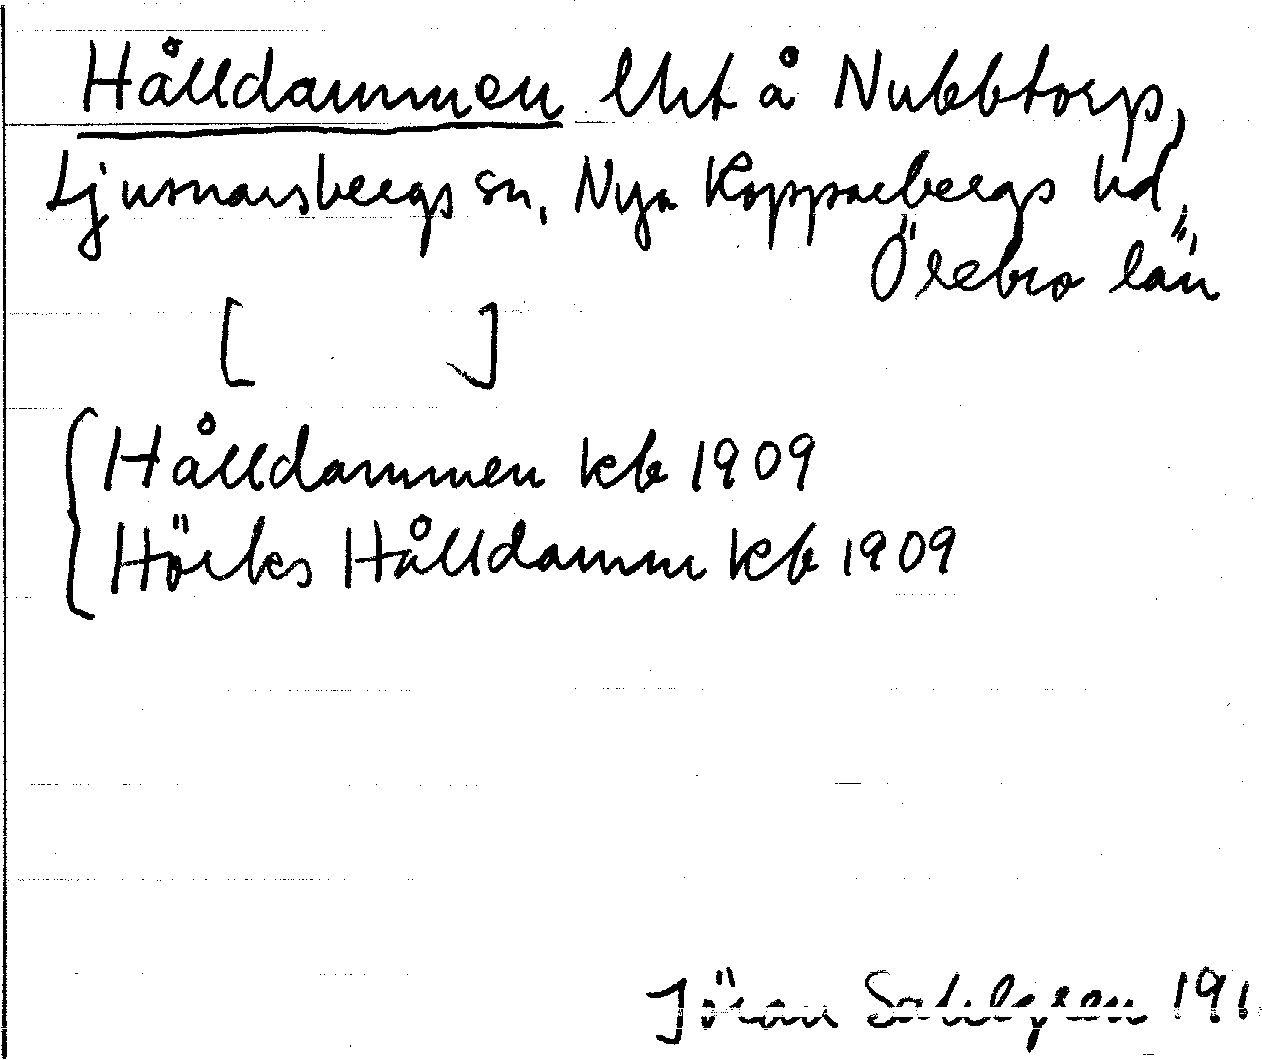 Hålldammen lht å Nubbtorp,
Ljusnarsbergs sn, Nya Kopparbergs hd,
Örebro län
[ ]
Hålldammen kb 1909
Hörks Hålldamm kb 1909
Jöran Sahlgren 191